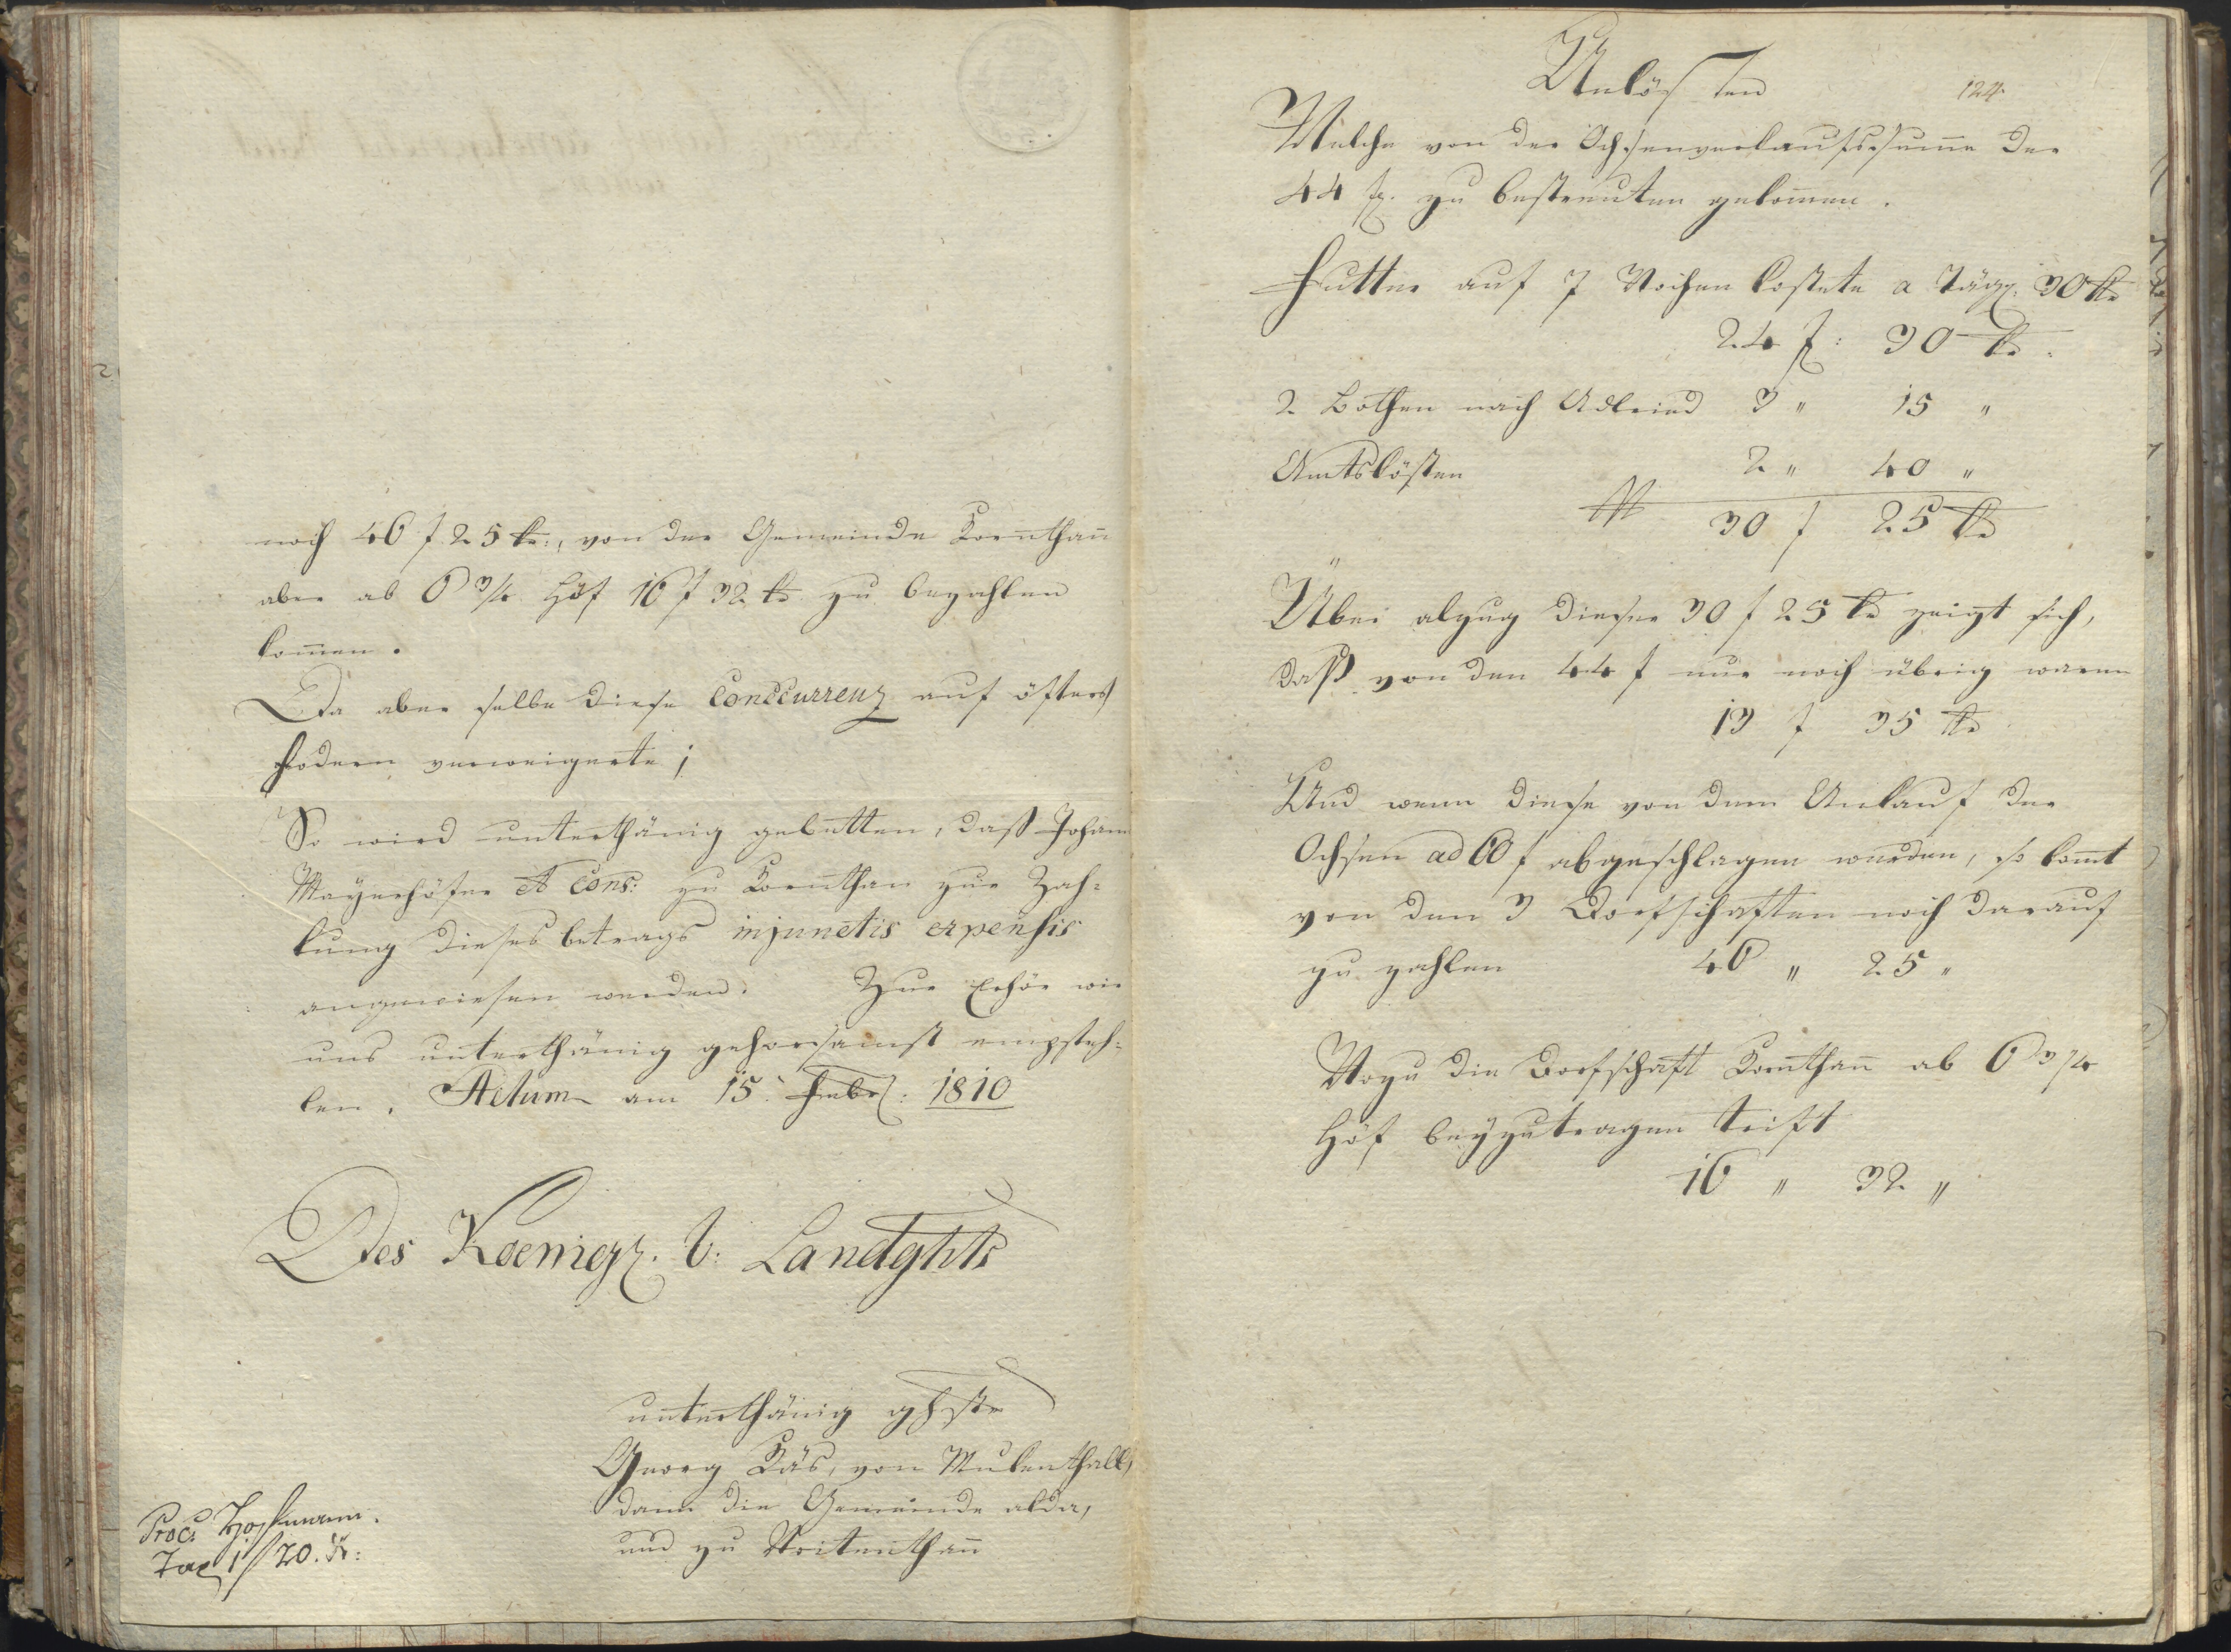 noch 46 f 25 kr:, von der Gemeinde Kornthan̄
aber ab 6 3/4 Höf 16 f 32 kr zu bezahlen
kom̄en.
Da aber selbe diese Conccurrenz auf öfters
fodern verweigerte;
So wird unterthänig gebetten, daß Johann
Mayerhöfer et Cons: zu Kornthan zur Zah=
lung dieses betrags injunctis expensis
angewiesen werden. Zur Erhör wir
uns unterthänig gehorsamst empfeh=
len. Actum am 15. Febr: 1810
Des Koenigl. b: Landghts
unterthänig ghste
Georg Käs, von Mulenthall,
dann die Gemeinde alda,
und zu Voitenthan̄
Proc: Hoffmann.
Tax 1 f 20. Kr:
Unkösten
124.
Welche von der Ochsenverkaufssum̄e der
44 f. zu bestreuten gekom̄en.
Futter auf 7 Wochen kostete a tägl. 30 kr
24 f: 30 kr.
2 Bothen nach 3 " 15 "
Amtskösten 2 " 40 "
30 f 25 kr
Übei abzug dieser 30 f 25 kr zeigt sich,
daß von den 44 f nur noch übrig waren
13 f 35 kr
Und wenn diese von dem Ankauf der
Ochsen ad 60 f abgeschlagen werden, so kom̄t
von den 3 Dorfschaften noch darauf
zu zahlen 46 " 25 "
Wozu die Dorfschaft Kornthan̄ ab 6 3/4
Höf beyzutragen trift
16 " 32 "